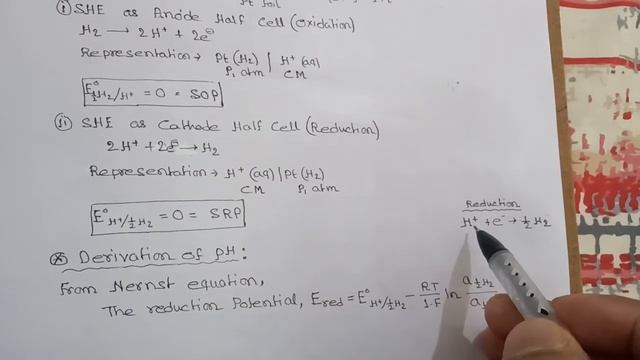 Pt foil
(i) SHE as Anode Half Cell (Oxidation)
H₂ → 2H⁺ + 2e⊖
Representation → Pt (H₂) | H⁺ (aq)
P₁ atm CM
E°½H₂/H⁺ = 0 = SOP
(ii) SHE as Cathode Half Cell (Reduction)
2H⁺ + 2e⊖ → H₂
Representation → H⁺ (aq) | Pt (H₂)
CM P₁ atm
E°H⁺/½H₂ = 0 = SRP
Reduction
H⁺ + e⁻ → ½H₂
(*) Derivation of pH:
From Nernst equation,
The reduction Potential, Ered = E°H⁺/½H₂ - RT/1.F ln a½H₂/a